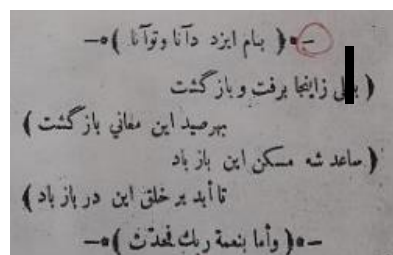 ﴿ بنام ایزد دآنا وتوآنا ﴾
( زاینجا برفت و بازگشت
بهرصید این معاني بازگشت )
( ساعد شه مسکن این باز باد
تا أبد بر خلق این در باز باد )
﴿ وأما بنعمة ربك فحدّث ﴾